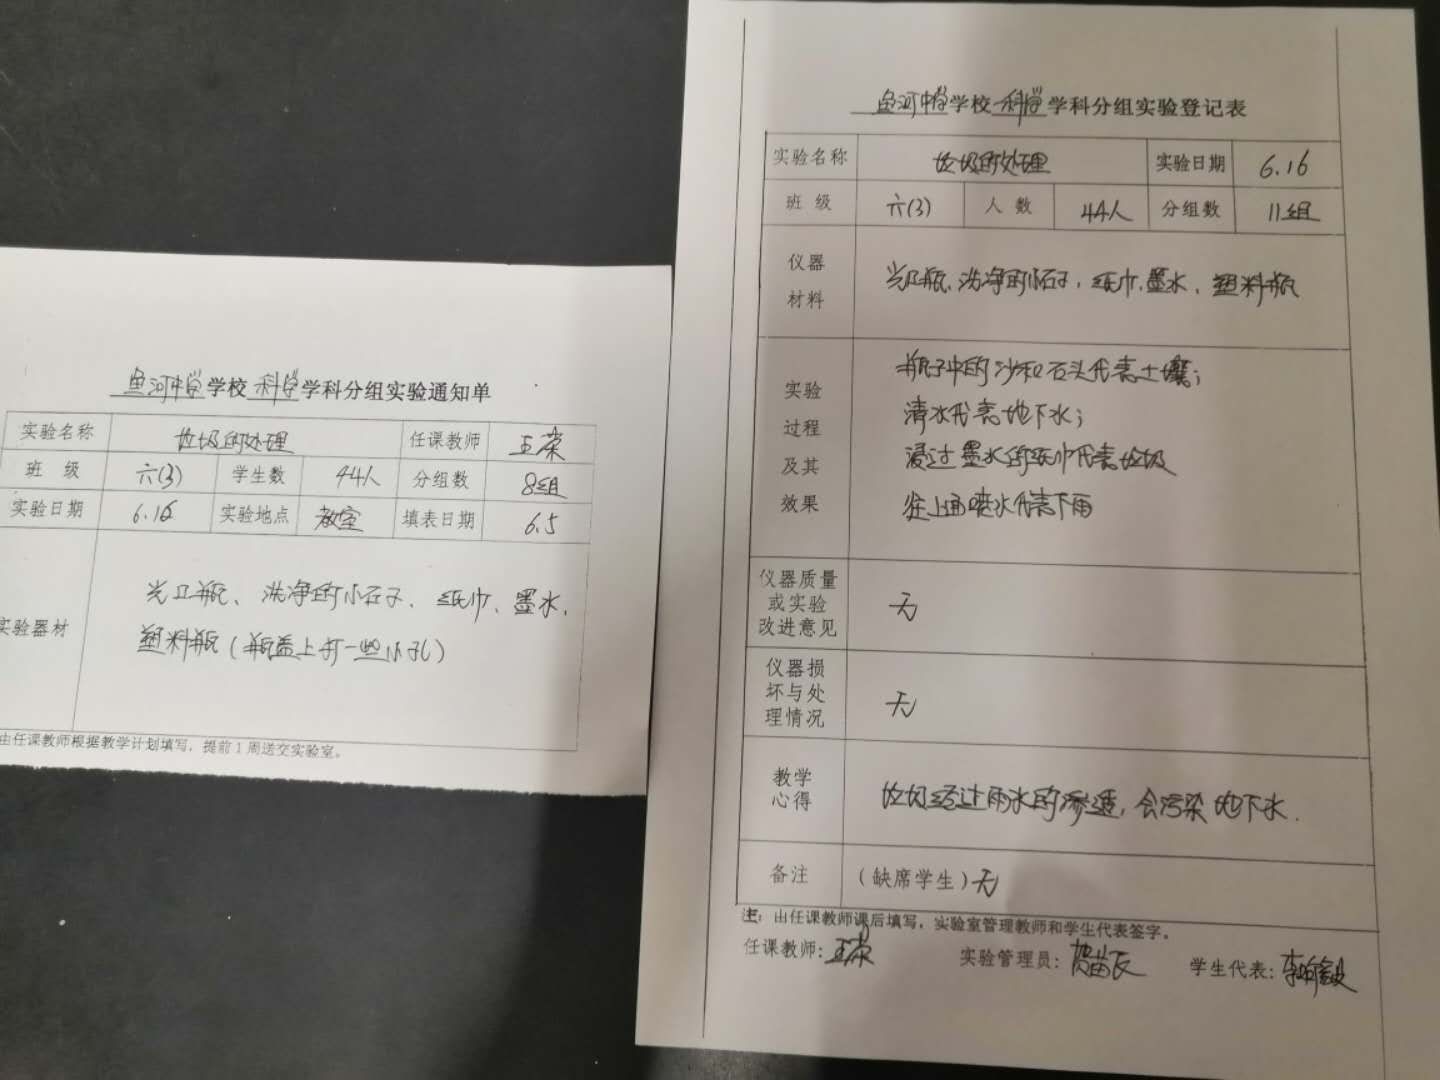 鱼河中学学校 科学 学科分组实验通知单
实验名称 垃圾的处理 任课教师 王荣
班 级 六(3) 学生数 44人 分组数 8组
实验日期 6.16 实验地点 教室 填表日期 6.5
实验器材
广口瓶、洗净的小石子、纸巾、墨水、
塑料瓶(瓶盖上打一些小孔)
由任课教师根据教学计划填写，提前1周送交实验室。
鱼河中学学校 科学 学科分组实验登记表
实验名称 垃圾的处理 实验日期 6.16
班 级 六(3) 人 数 44人 分组数 11组
仪器
材料
广口瓶、洗净的小石子、纸巾、墨水、塑料瓶
实验
过程
及其
效果
瓶子中的沙和石头代表土壤；
清水代表地下水；
浸过墨水的纸巾代表垃圾
往上面喷水代表下雨
仪器质量
或实验
改进意见
无
仪器损
坏与处
理情况
无
教学
心得
垃圾经过雨水的渗透，会污染地下水.
备注 (缺席学生)无
注：由任课教师课后填写，实验室管理教师和学生代表签字。
任课教师：王荣 实验管理员： 学生代表：